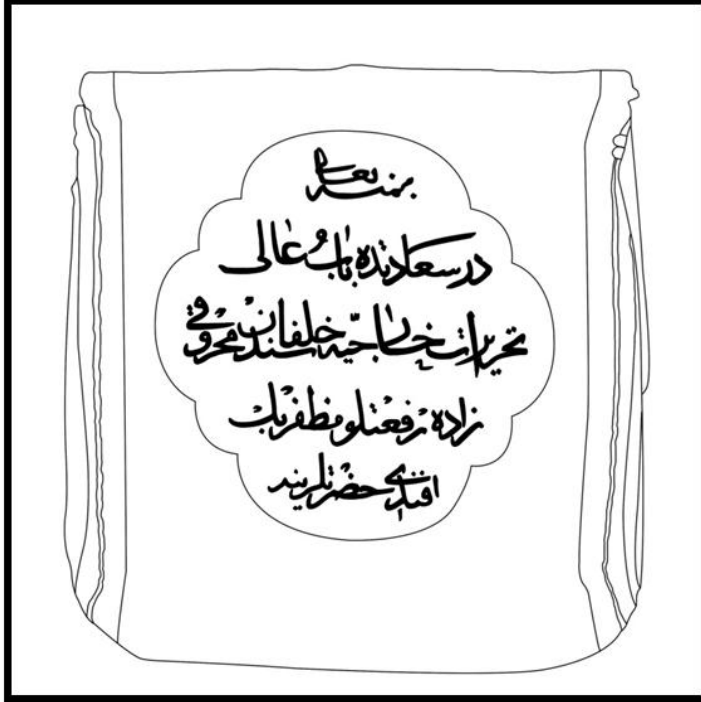 بمنه تعالى
در سعادتده باب عالى
تحريرات خارجيه خلفاسندن محروقى
زاده رفعتلو مظفر بك
افندى حضرتلرينه